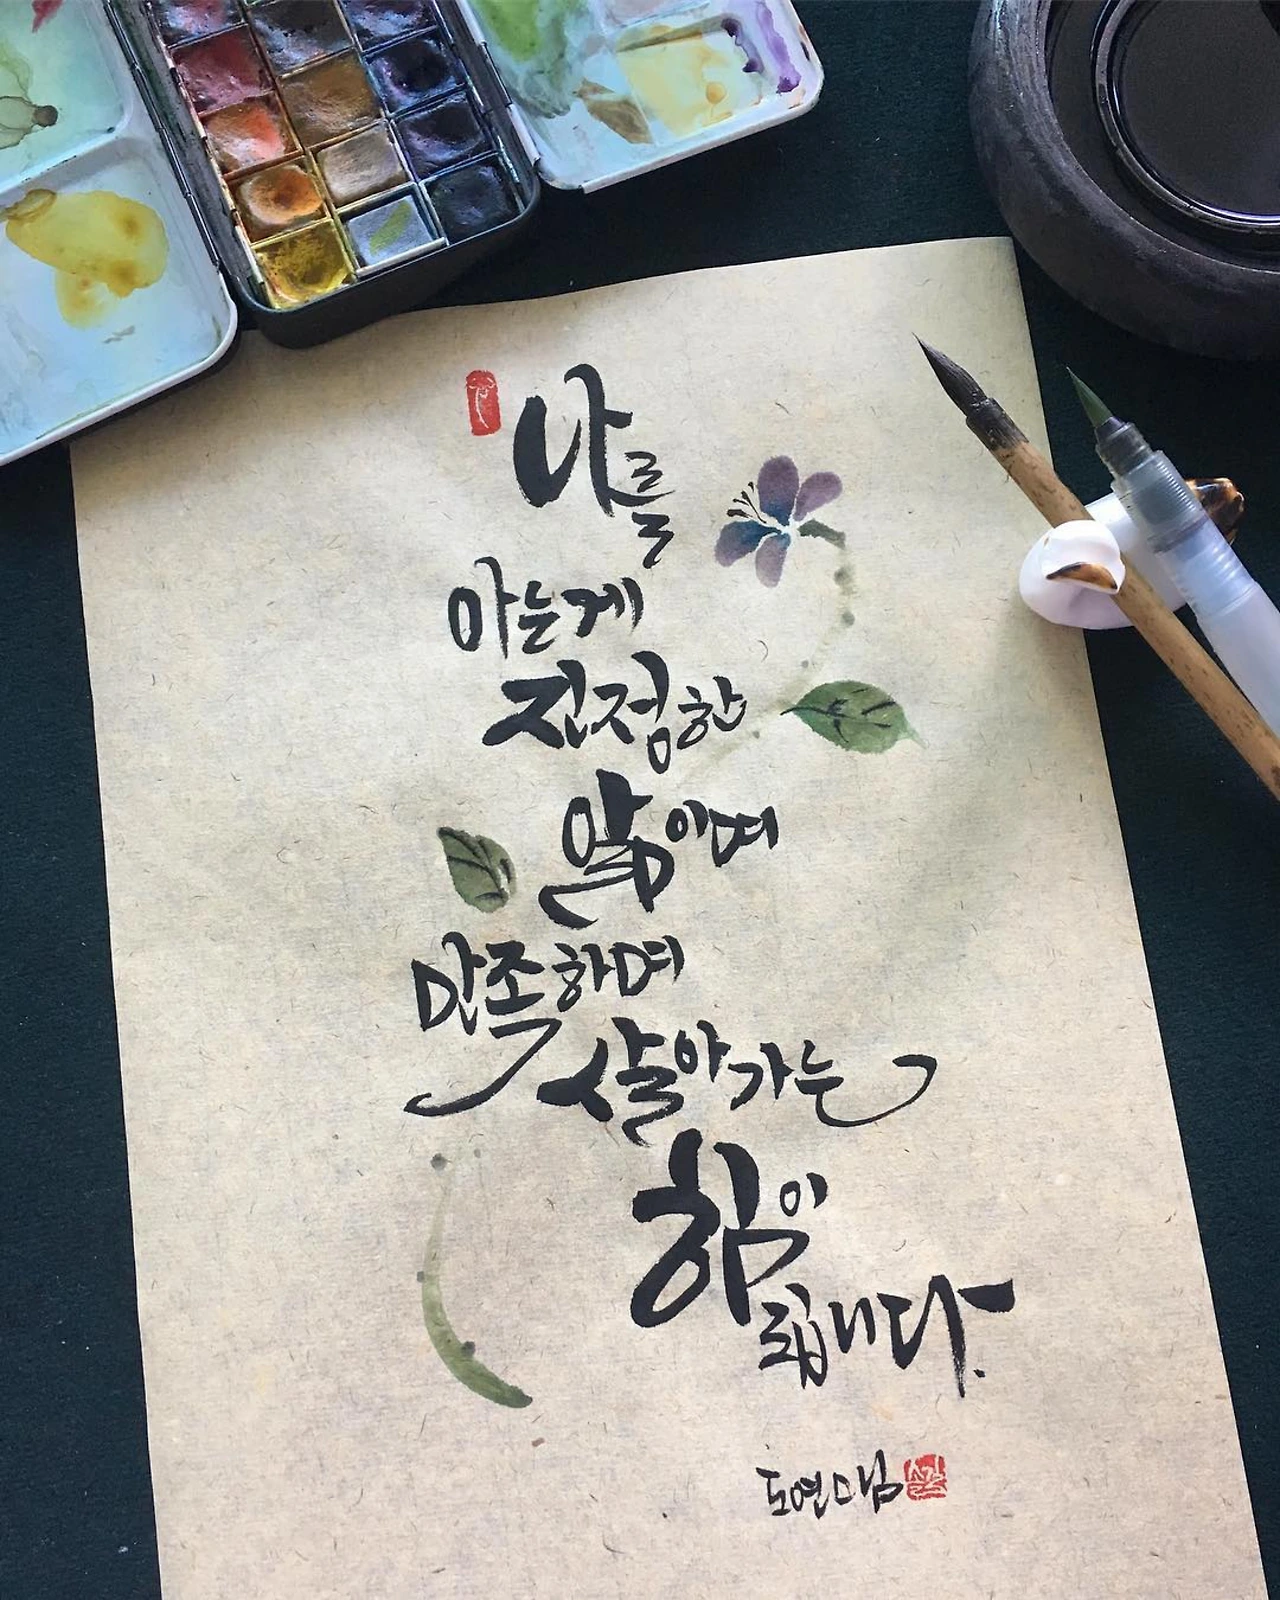 나를
아는게
진정한
앎이며
만족하며
살아가는
힘이
됩니다.
도연스님